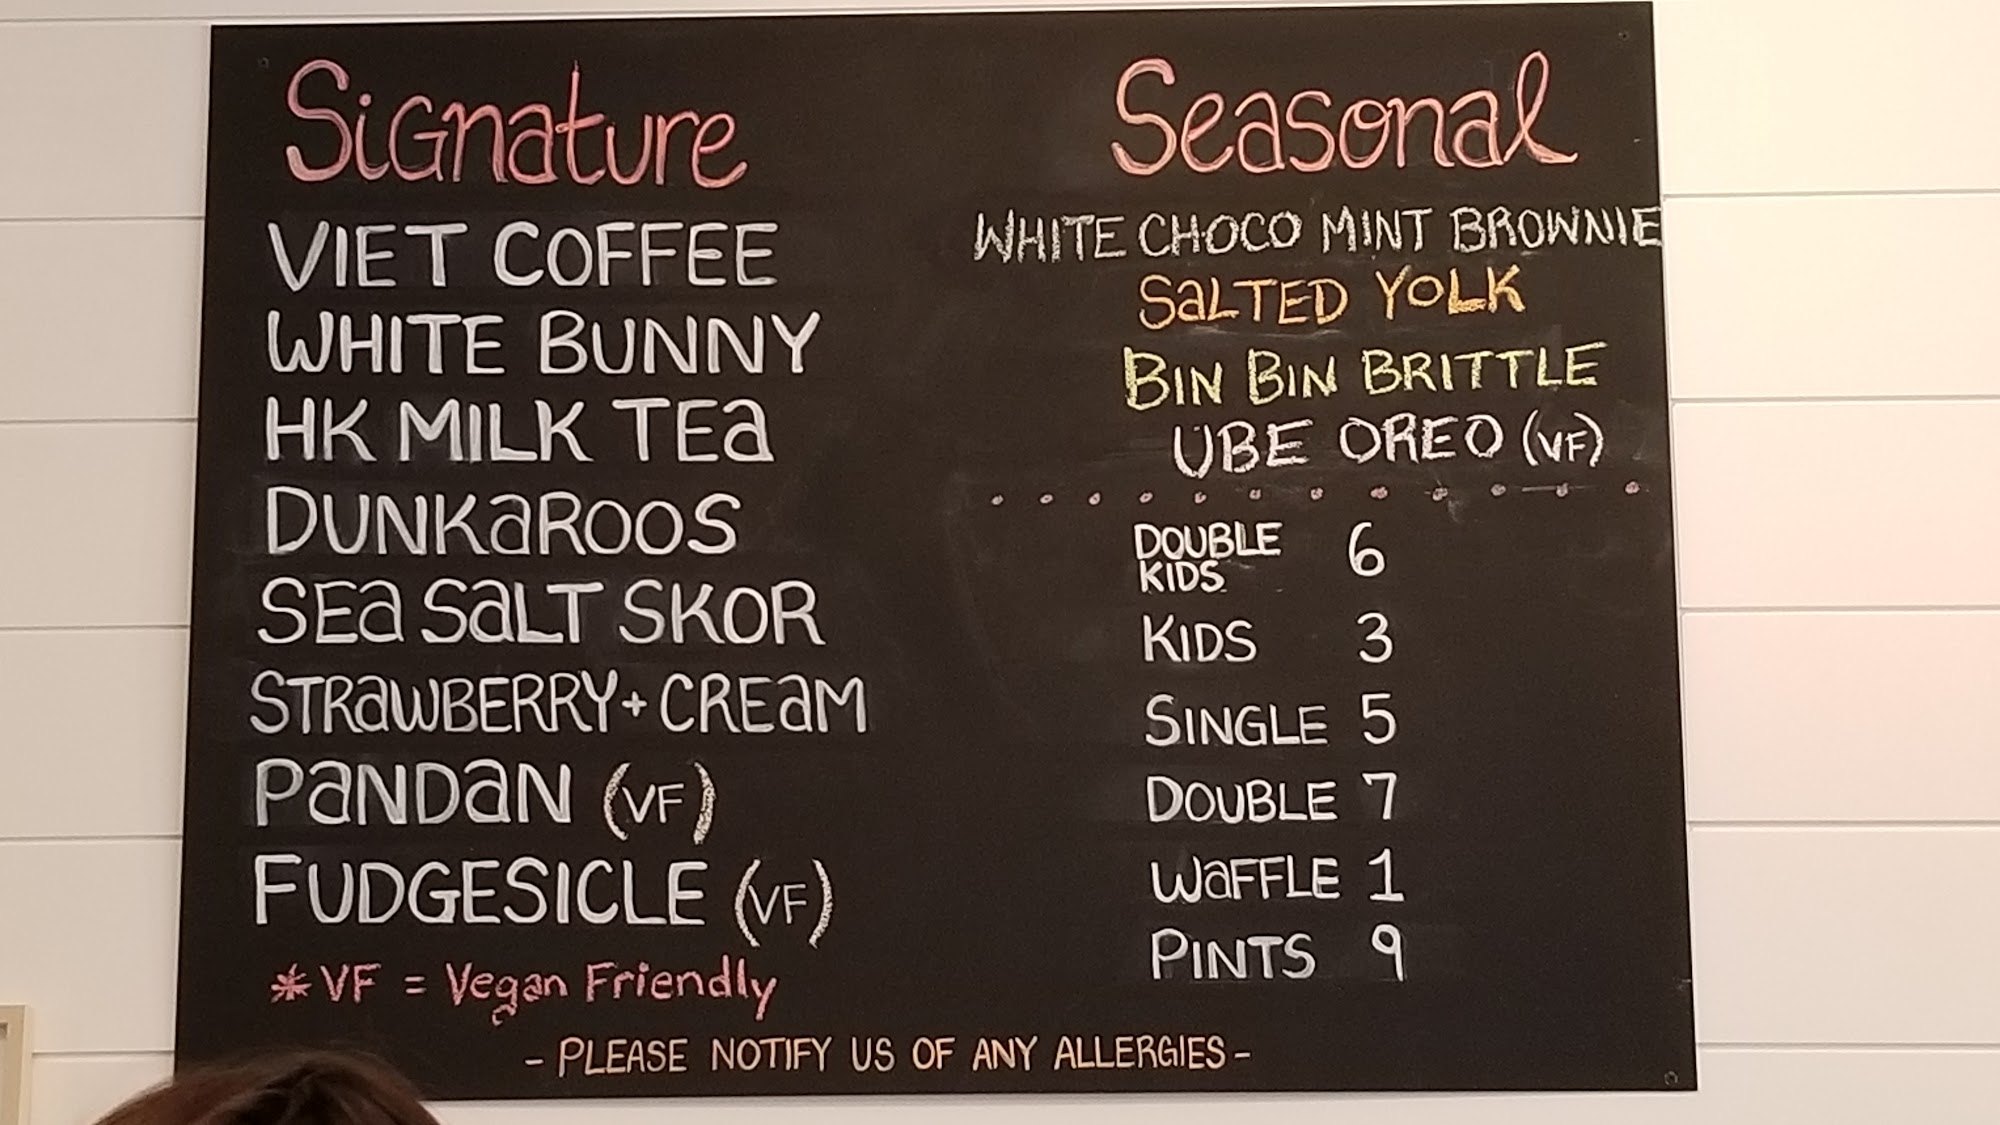 Signature
VIET COFFEE
WHITE BUNNY
HK MILK TEa
DUNKaROOS
SEa SaLT SKOR
STRaWBERRY + CREaM
PaNDaN (VF)
FUDGESICLE (VF)
* VF = Vegan Friendly
Seasonal
WHITE CHOCO MINT BROWNIE
SaLTED YOLK
BIN BIN BRITTLE
UBE OREO (VF)
DOUBLE KIDS 6
KIDS 3
SINGLE 5
DOUBLE 7
WaFFLE 1
PINTS 9
- PLEASE NOTIFY US OF ANY ALLERGIES -